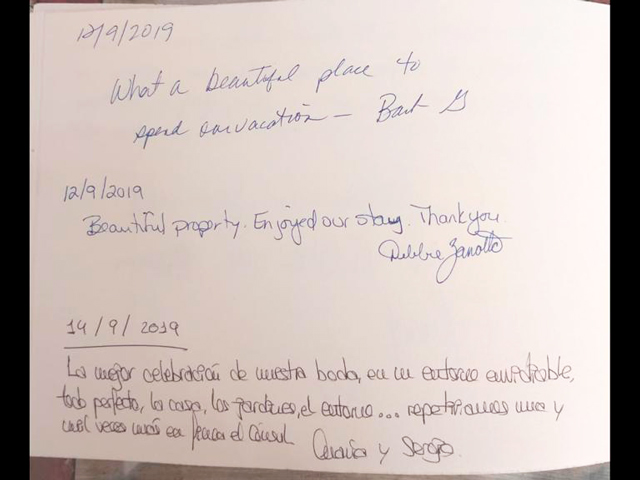 12/9/2019
What a beautiful place to
spend our vacation — Bart G
12/9/2019
Beautiful property. Enjoyed our stay. Thank you.
Debbie Zanotto
14/9/2019
La mejor celebración de nuestra boda, en un entorno envidiable,
todo perfecto, la casa, los jardines, el entorno... repetiriamos una y
mil veces más en el Cónsul
y Sergio.